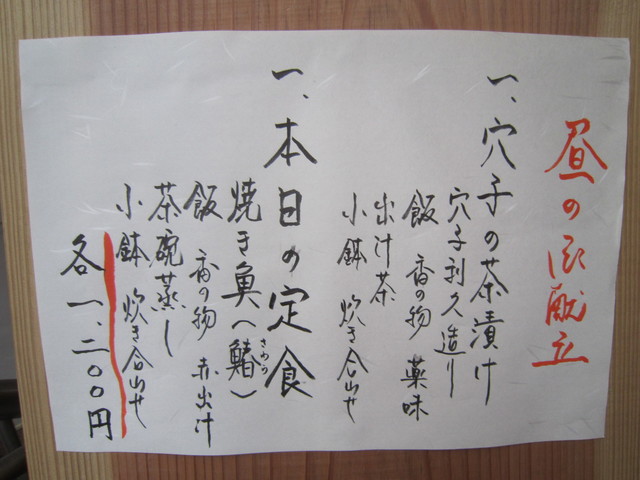 昼の御献立
一、穴子の茶漬け
穴子利久造り
飯 香の物 薬味
出汁茶
小鉢 炊き合わせ
一、本日の定食
焼き魚(鰆)
さわら
飯 香の物 赤出汁
茶碗蒸し
小鉢 炊き合わせ
各一、二〇〇円